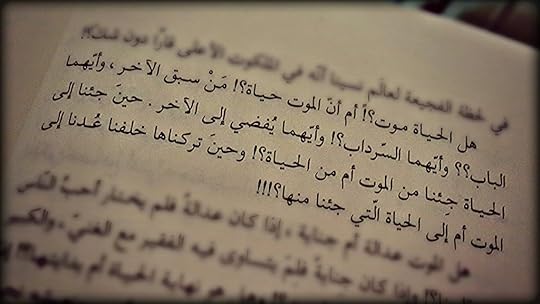 في لحظة الفجيعة لعالَم نسينا أنّه في الملكوت الأعلى قارًّا دون شك؟!
هل الحياة موت؟! أم أنّ الموت حياة؟! مَنْ سبق الآخر ، وأيّهما
الباب؟؟ وأيّهما السّرداب؟! وأيّهما يُفضي إلى الآخر . حينَ جئنا إلى
الحياة جِئنا من الموت أم من الحياة؟! وحينَ تركناها خلفنا عُدنا إلى
الموت أم إلى الحياة الّتي جئنا منها؟!!!
هل الموت عدالة أم جناية ، إذا كان عدالة فلم يختار أحبّ النّاس
وإذا كان جنايةً فلِمَ يتساوى فيه الفقير مع الغنيّ ، والكبير
هو نهاية الحياة أم بدايتها؟!